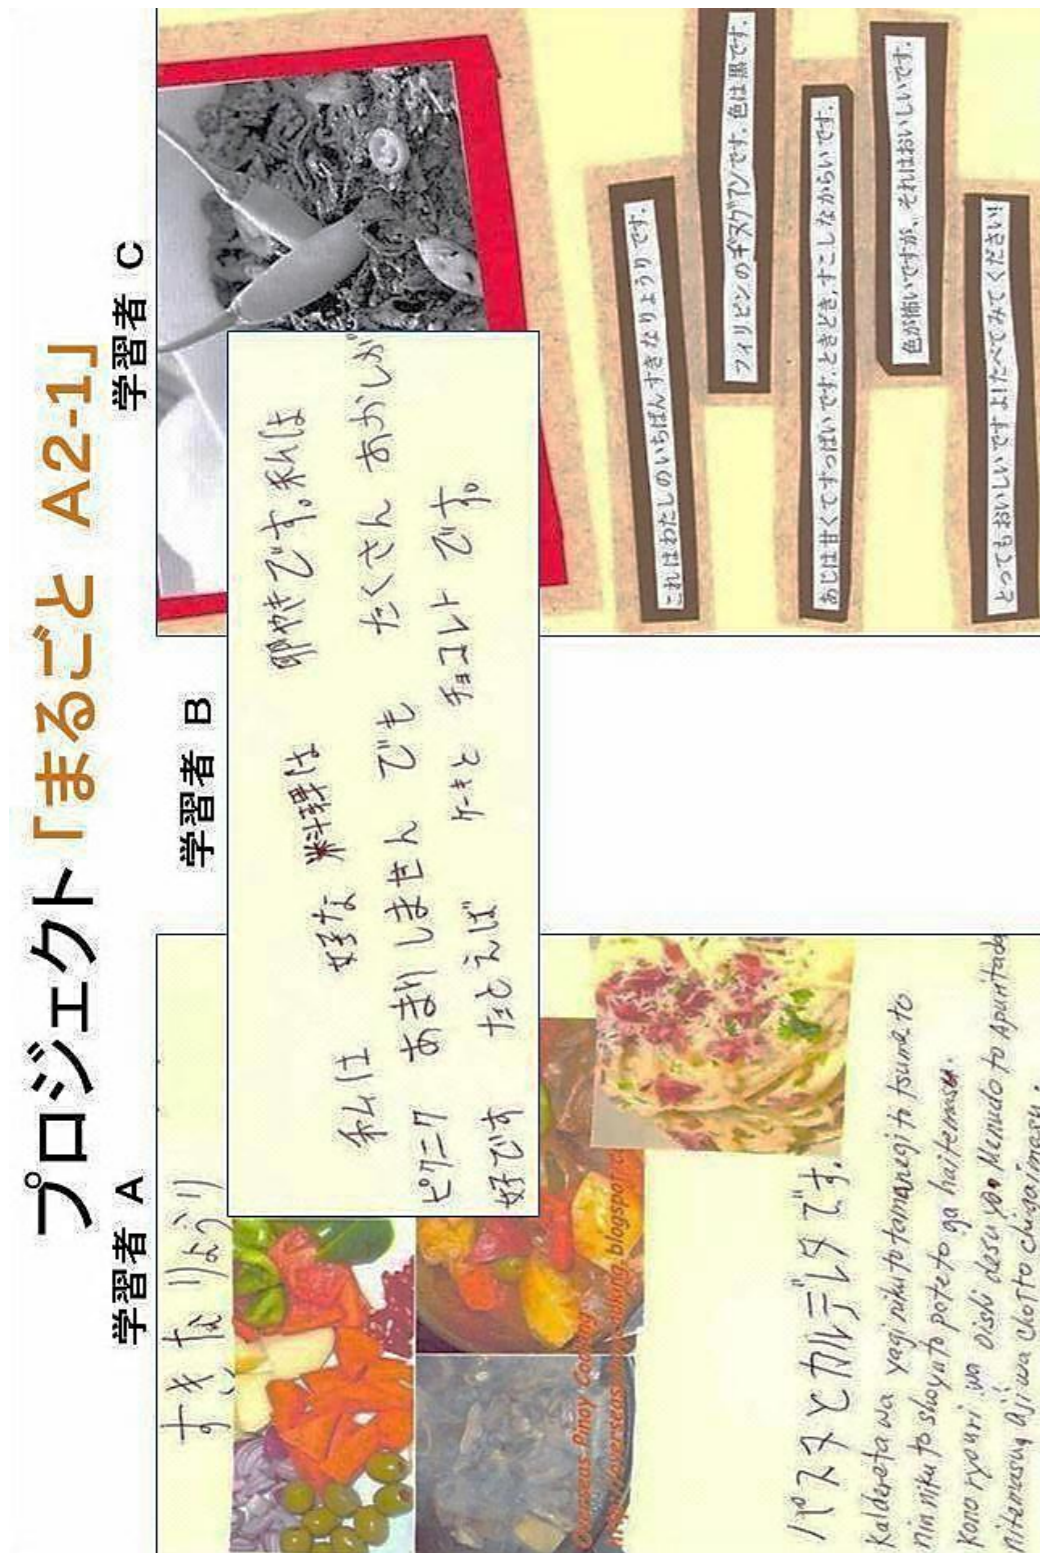 プロジェクト「まるごと A2-1」
学習者 A
すきな りょうり
Overseas Pinoy Cooking
パスタとカルデレタです.
Kaldereta wa yagi niku to tamanegi to tsuma to
ninniku to shoyu to poteto ga haitemasu.
Kono ryouri wa Oishi desu yo. Menudo to Apuritada
nitemasu, aji wa chotto chigaimasu.
学習者 B
私は 好な 料理は 卵やきです。私は
ピクニク あまりしません でも たくさん おかしが
好です たとえば ケーキと チョコレト です。
学習者 C
これはわたしのいちばんすきなりょうりです.
フィリピンのギヌグアンです. 色は黒です.
あじは甘くてすっぱいです.ときどき,すこしなからいです.
色が怖いですが、それはおいしいです.
とってもおいしいですよ!たべてみてください!